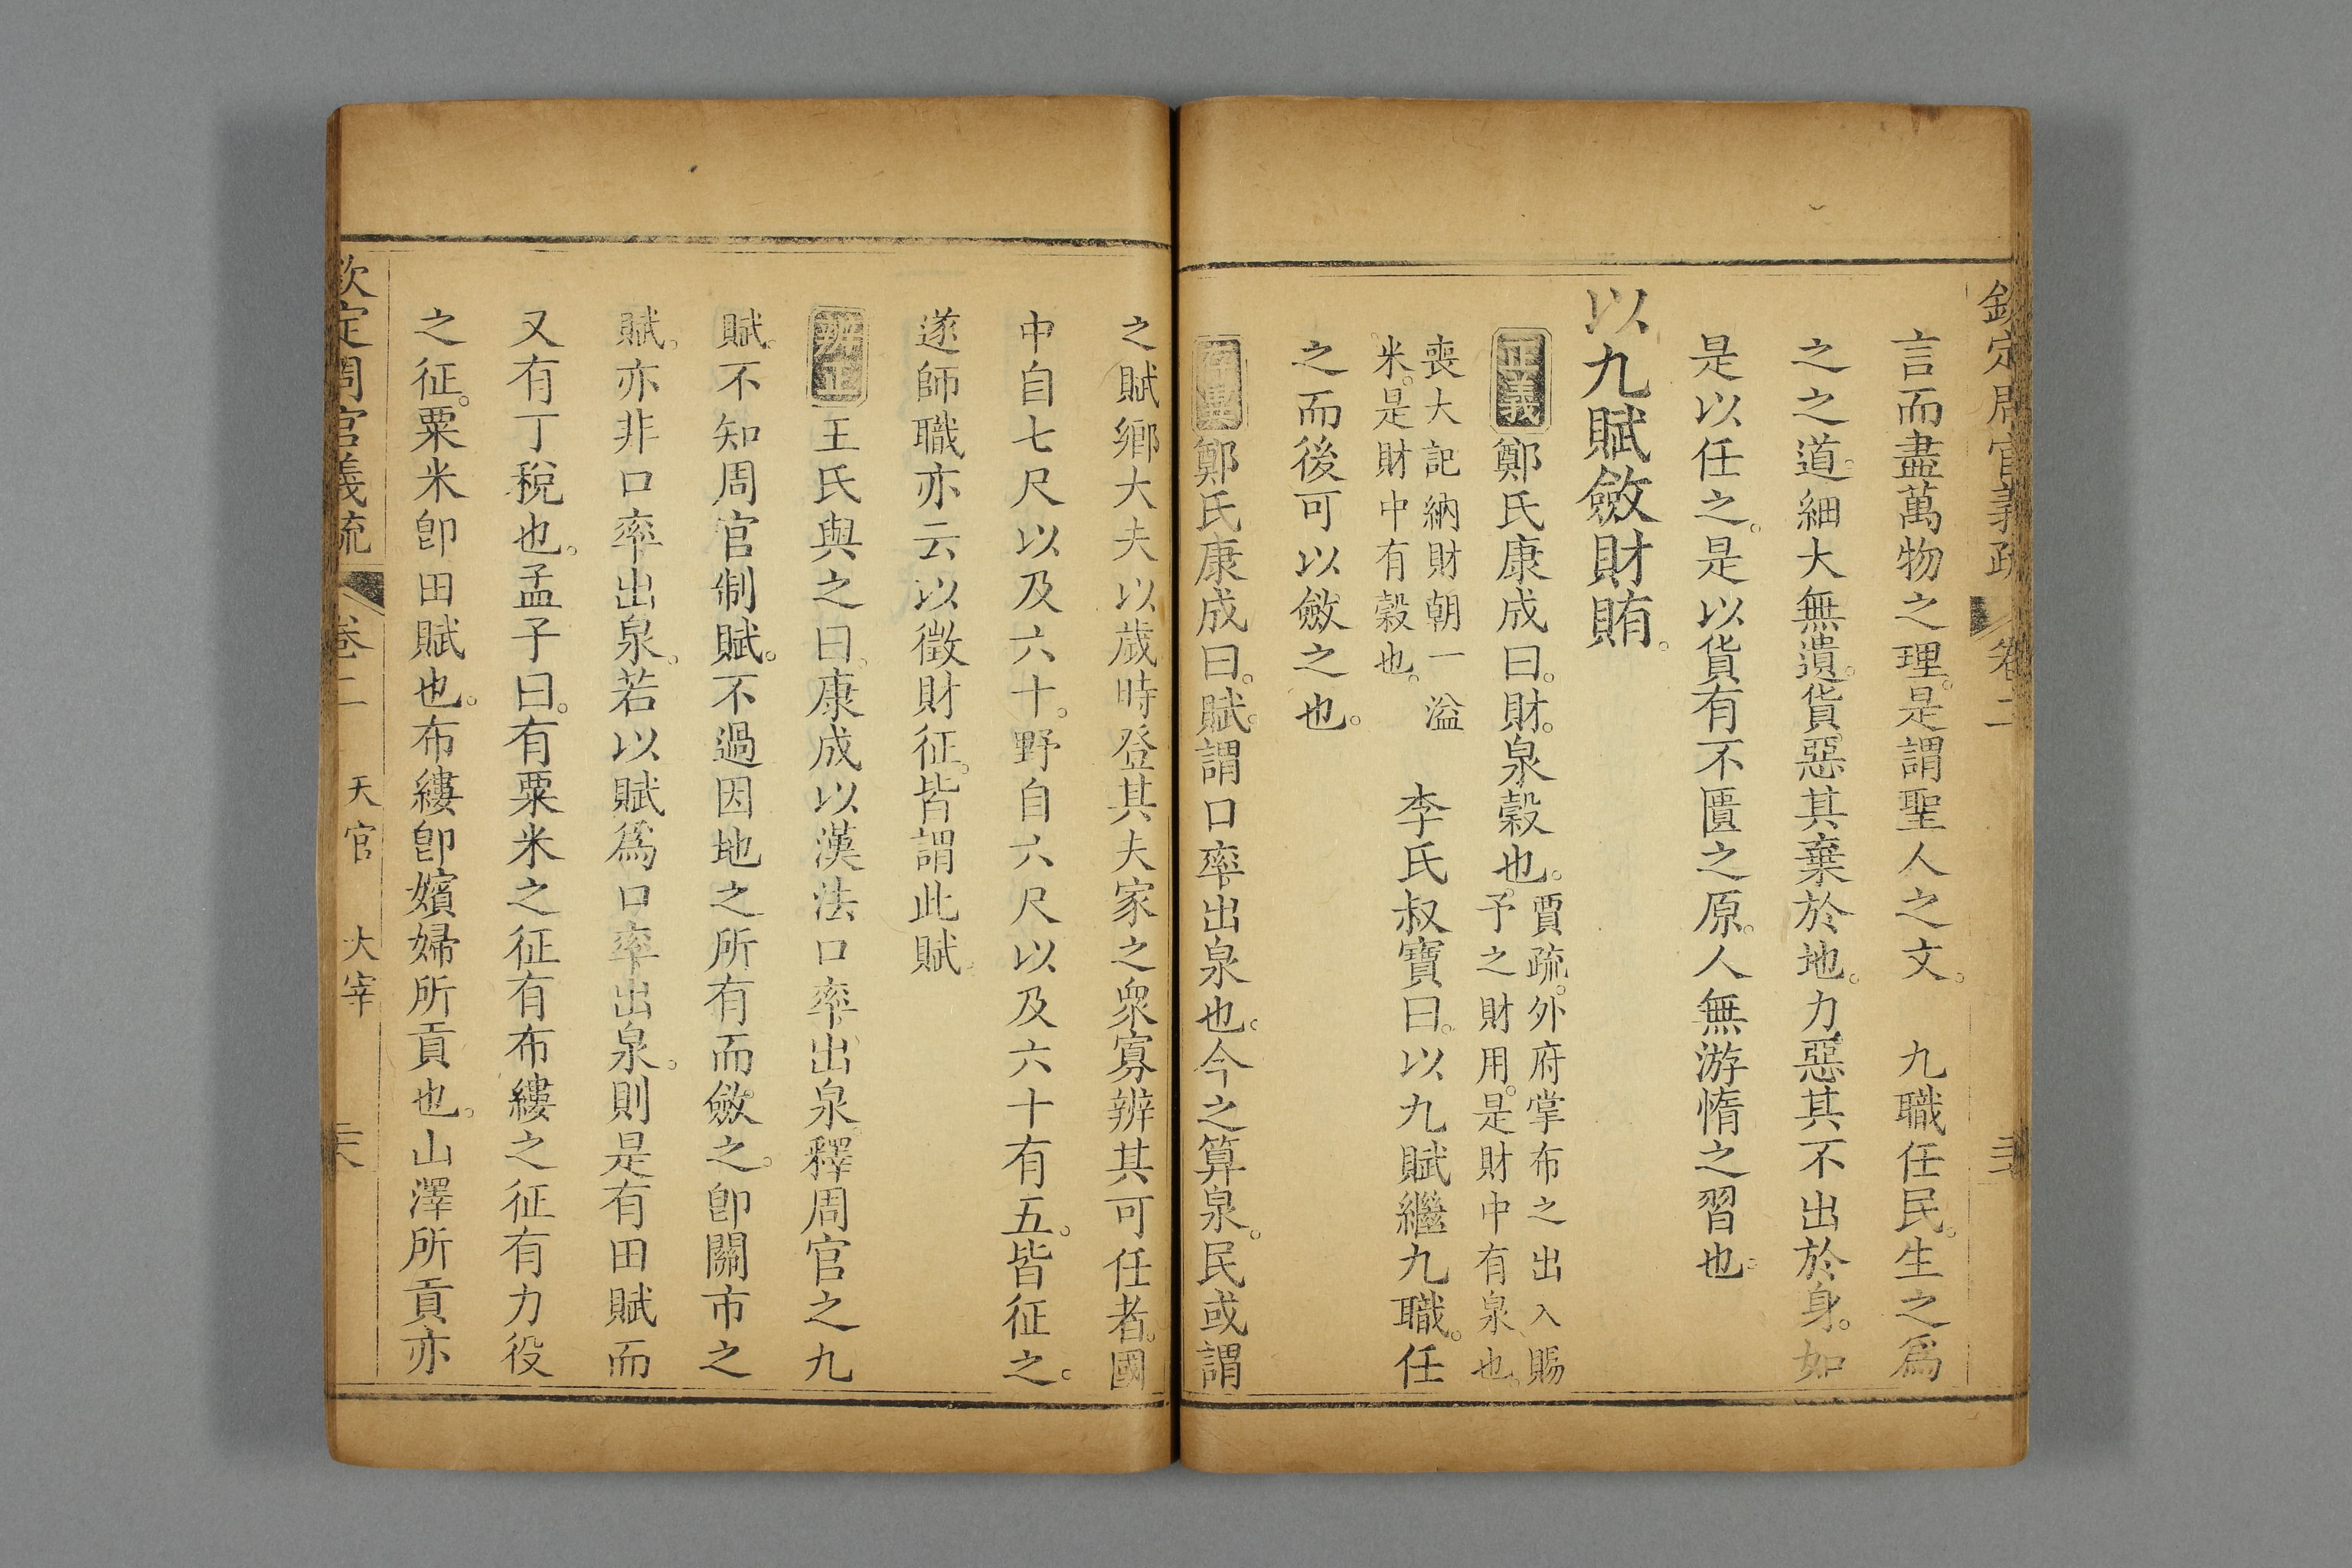 欽定周官義疏 卷二
言而盡萬物之理。是謂聖人之文。 九職任民。生之爲
之之道。細大無遺。貨惡其棄於地。力惡其不出於身。如
是以任之。是以貨有不匱之原。人無游惰之習也。
以九賦斂財賄。
正義 鄭氏康成曰。財。泉穀也。賈疏。外府掌布之出入賜
予之財用。是財中有泉也。
喪大記納財朝一溢
米。是財中有穀也。 李氏叔寶曰。以九賦繼九職。任
之而後可以斂之也。
存異 鄭氏康成曰。賦。謂口率出泉也。今之算泉。民或謂
之賦鄉大夫以歲時登其夫家之衆寡辨其可任者。國
中自七尺以及六十。野自六尺以及六十有五。皆征之。
遂師職亦云以徵財征。皆謂此賦。
辨正 王氏與之曰。康成以漢法口率出泉。釋周官之九
賦。不知周官制賦。不過因地之所有而斂之。卽關市之
賦。亦非口率出泉。若以賦爲口率出泉。則是有田賦而
又有丁稅也。孟子曰。有粟米之征有布縷之征有力役
之征。粟米卽田賦也。布縷卽嬪婦所貢也。山澤所貢亦
欽定周官義疏 卷二 天官 大宰